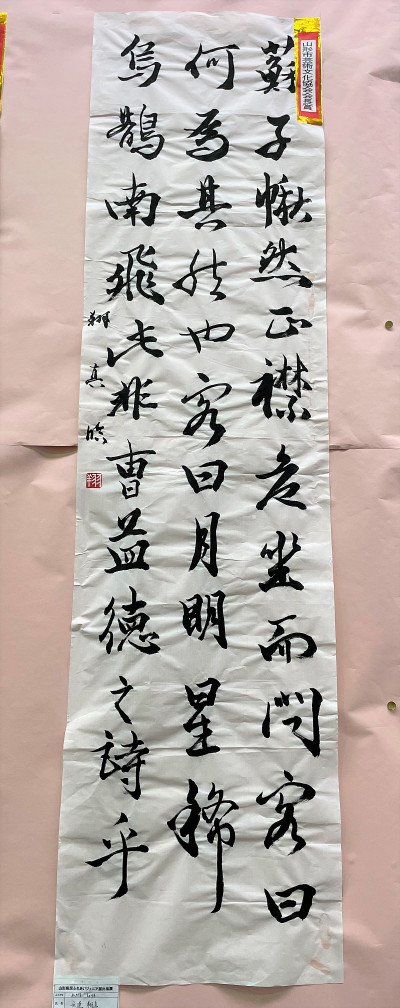 山形市芸術文化協会会長賞
蘇子愀然正襟危坐而問客曰
何為其然也客曰月明星稀
烏鵲南飛此非曹孟德之詩乎
翔真臨